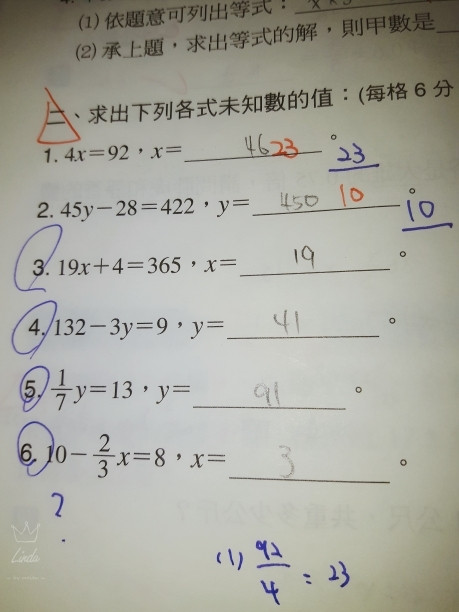 (1) 依題意可列出等式：
(2) 承上題，求出等式的解，則甲數是
二、求出下列各式未知數的值：(每格6分
1. 4x=92，x= 46 23 。 23
2. 45y－28=422，y= 450 10 。 10
3. 19x+4=365，x= 19 。
4. 132－3y=9，y= 41 。
5. 1/7 y=13，y= 91 。
6. 10－2/3 x=8，x= 3 。
?
(1) 92/4 = 23
Linda